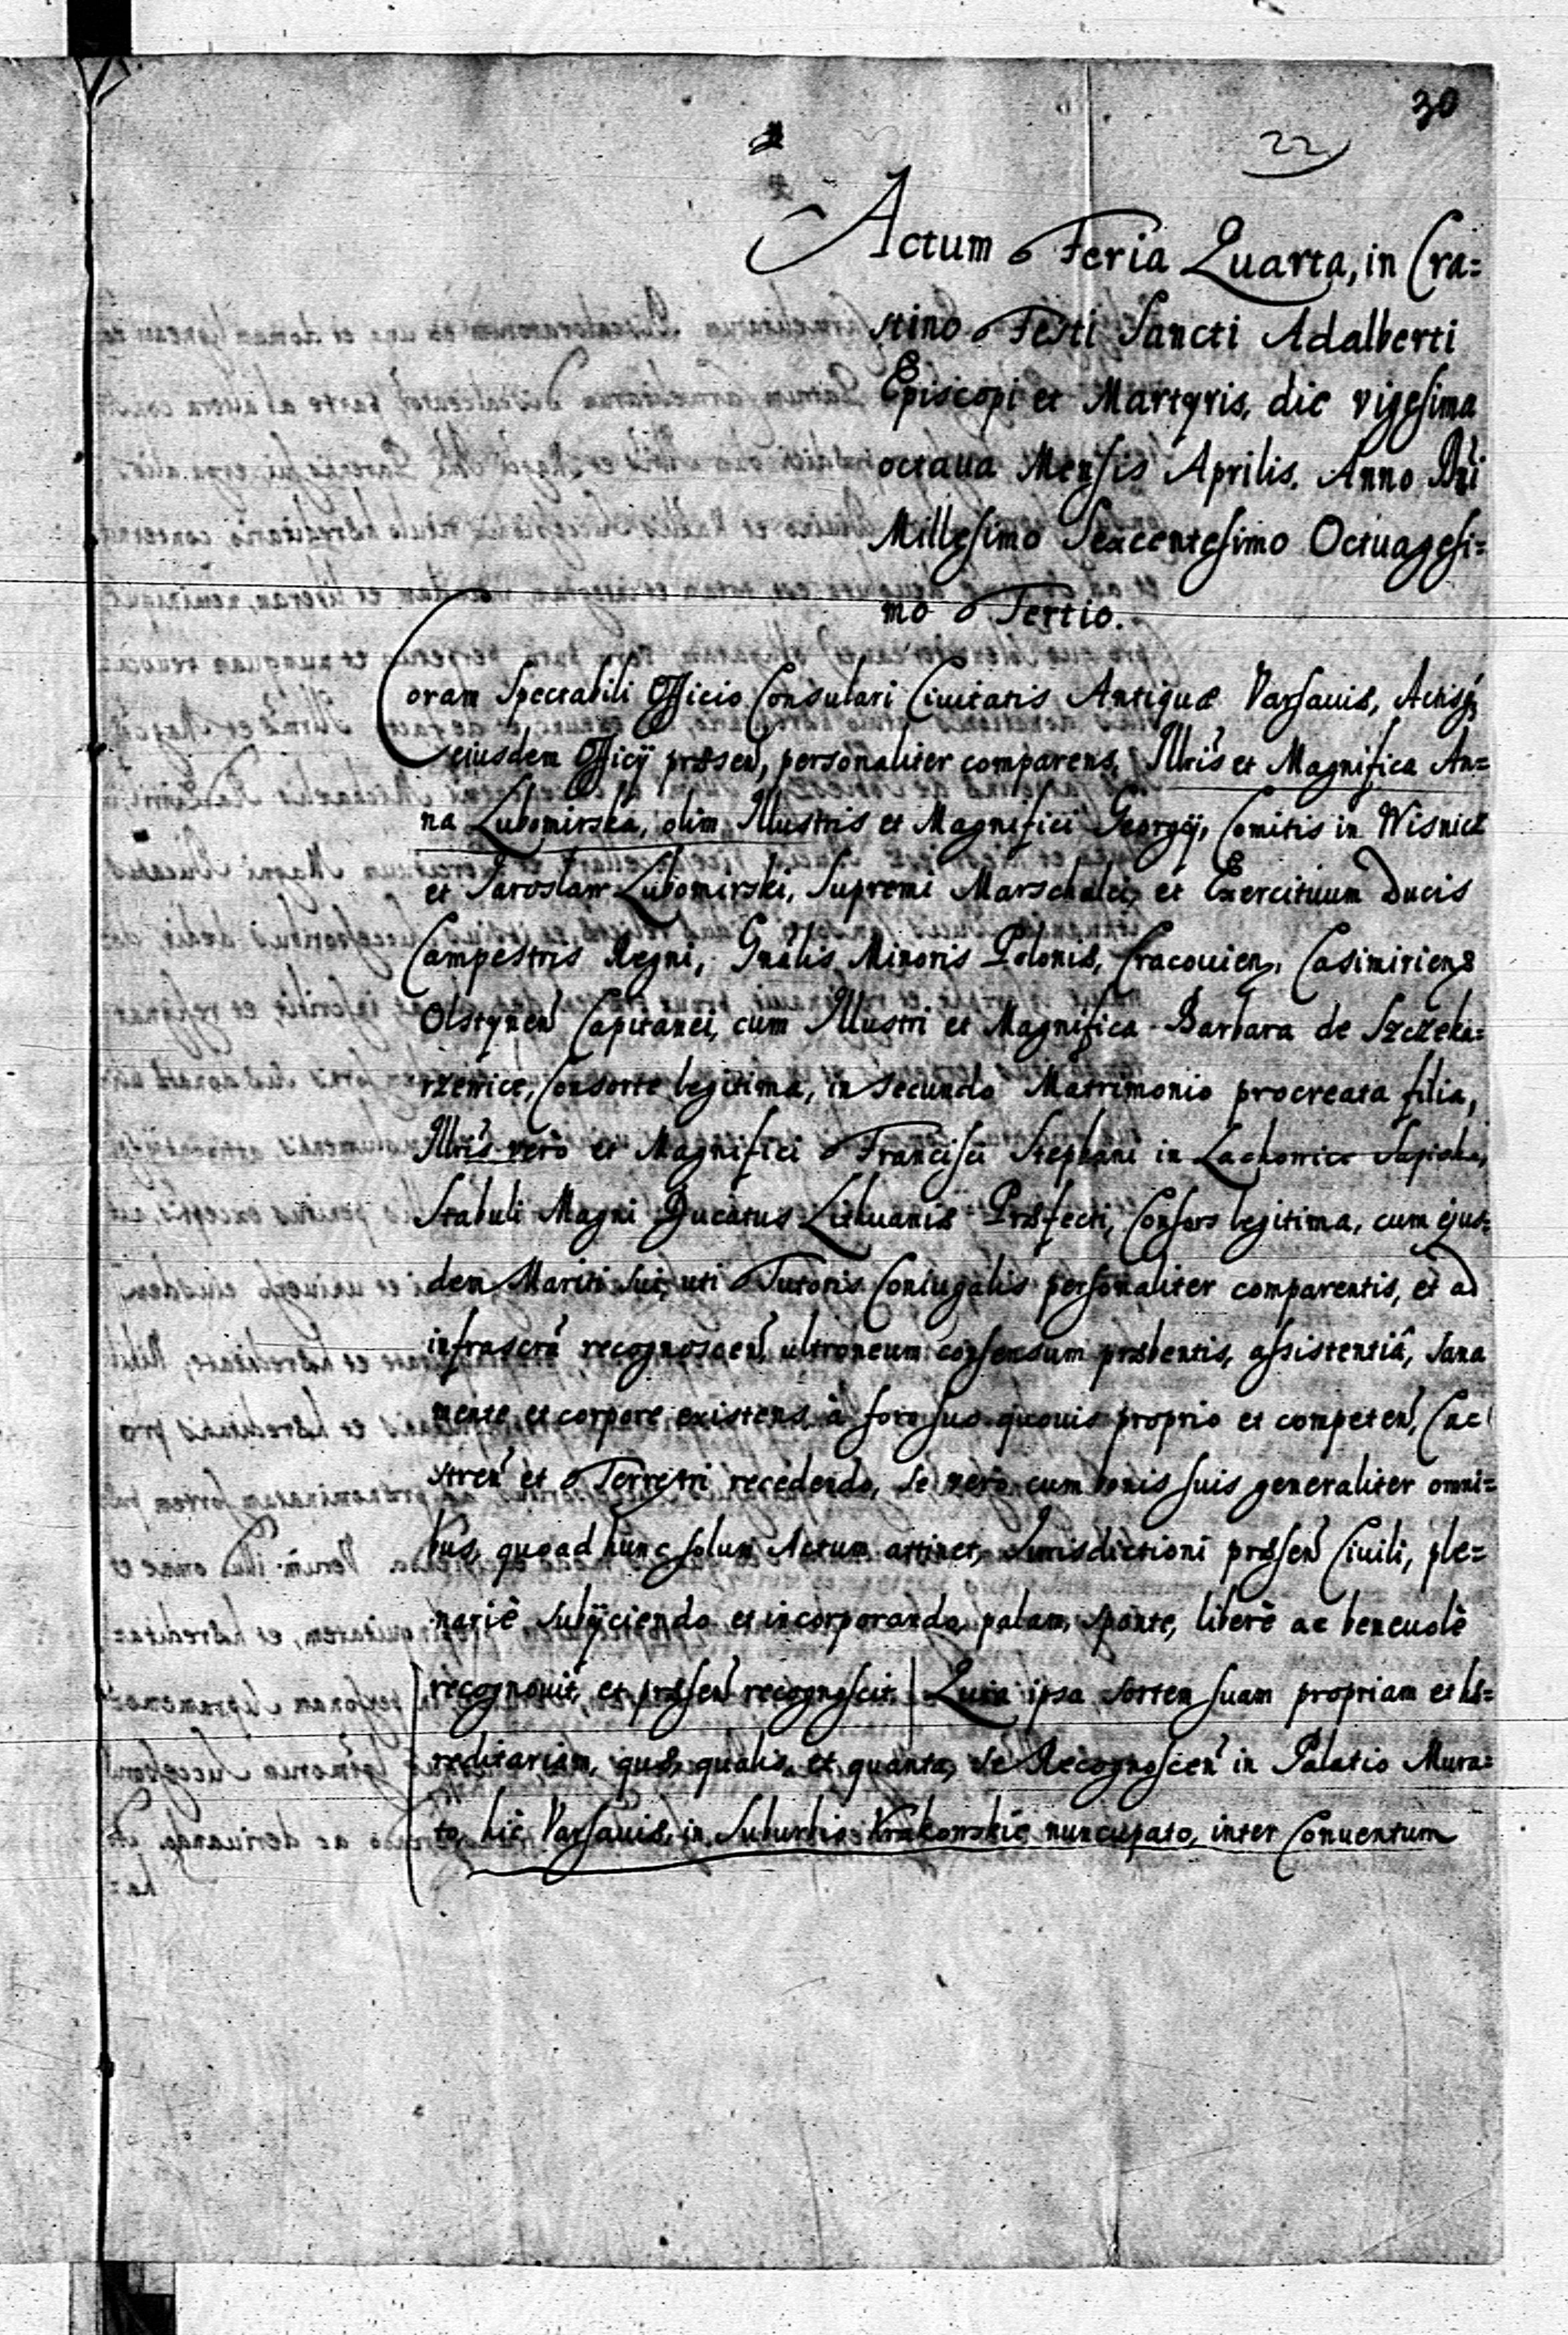 30
22
Actum Feria Quarta, in Cra=
stino Festi Sancti Adalberti
Episcopi et Martyris, die vigesima
octaua Mensis Aprilis. Anno Dni
Millesimo Sexcentesimo Octuagesi=
mo Tertio.
Coram Spectabili Officio Consulari Ciuitatis Antiquæ Varsauiæ, Actisq
eiusdem Officij præsen, personaliter comparens, Illris et Magnifica An=
na Lubomirska, olim Illustris et Magnifici Georgij, Comitis in Wisnicz
et Jarosław Lubomirski, Supremi Marschalci, et Exercituum Ducis
Campestris Regni, Gnalis Minoris Poloniæ, Cracouien, Casimiriens
Olstynen Capitanei, cum Illustri et Magnifica Barbara de Szczeka=
rzewice, Consorte legitima, in secundo Matrimonio procreata filia,
Illris vero et Magnifici Francisci Stephani in Lachowice Sapieha,
Stabuli Magni Ducatus Lithuaniæ Præfecti, Consors legitima, cum ejus=
dem Mariti sui, uti Tutoris Coniugalis personaliter comparentis, et ad
infrascrn recognoscen, ultroneum consensum præbentis, assistentiâ, sana
mente et corpore existens, à foro suo quouis proprio et competen, Ca
stren et Terrestri recedendo, se vero cum bonis suis generaliter omni=
bus, quoad hunc solum Actum attinet, Jurisdictioni præsen Ciuili, ple=
nariè subijciendo et incorporando, palam, sponte, liberè ac beneuolè
recognouit, et præsen recognoscit. Quia ipsa sortem suam propriam et hæ=
reditariam, quæ, qualis, et quanta, se Recognoscen in Palatio Mura=
to, hic Varsauiæ, in Suburbio Krakowskie nuncupato, inter Conuentum